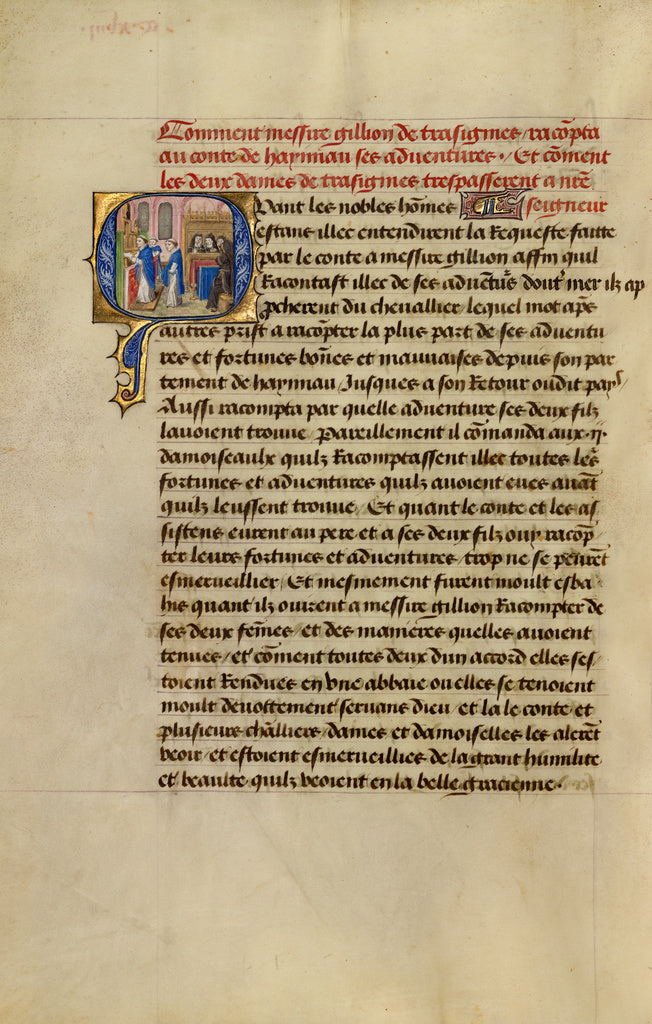 Comment messire gillion de trasignies / racōpta
au conte de haynnau ses adventures . / Et cōment
les deux dames de trasignies trespasserent a nr̄e
Quant les nobles hōmes seigneur
estans illec entendirent la Requeste faitte
par le conte a messire gillion affin quil
Racontast illec de ses adventurs dout̄ mer ilz ap
pcherent du chevallier lequel mot apēs
autres prist a racōpter la plus part de ses adventu
res et fortunes bōnes et mauvaises depuis son par
tement de haynnau / Jusques a son Retour oudit pays /
Aussi racompta par quelle adventure ses deux filz
lavoient trouve / Pareillement il cōmanda aux .ii.
damoiseaulx quilz Racomptassent illec toutes les
fortunes et adventures quilz avoient eues avāt
quilz leussent trouve / Et quant le conte et les as
sistens eurent au pere et a ses deux filz ouy racōp
ter leurs fortunes et adventures / trop ne se peurēt
esmerveillier / Et mesmement furent moult esba
his quant ilz ouirent a messire gillion Racompter de
ses deux fem̄es / et des manieres quelles avoient
tenues / et cōment toutes deux dun accord elles ses /
toient Rendues en une abbaie ou elles se tenoient
moult devottement servans dieu / et la le conte et
plusieurs chl̄liers / dames et damoiselles les alerēt
veoir / et estoient esmerveillies de la grant humilite
et beaulte quilz veoient en la belle gracienne .